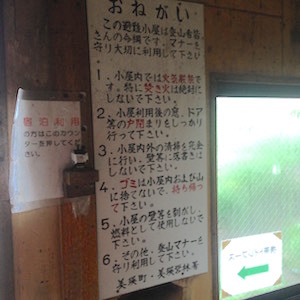 おねがい
この避難小屋は登山者皆
さんの小屋です。マナーを
守り大切に利用して下さい。
1. 小屋内では火気厳禁で
す。特に焚き火は絶対に
しないで下さい。
2. 小屋利用後の窓、ドア
等の戸閉まりをしっかり
行って下さい。
3. 小屋内外の清掃を完全
に行い、壁等に落書きは
しないで下さい。
4. ゴミは小屋内および山
に捨てないで、持ち帰っ
て下さい。
5. 小屋の壁等を剥がし、
燃料として使用しないで
下さい。
6. その他、登山マナーを
守り利用して下さい。
美瑛町・美瑛営林署
の方はこのカウン
ターを押してくだ
さい